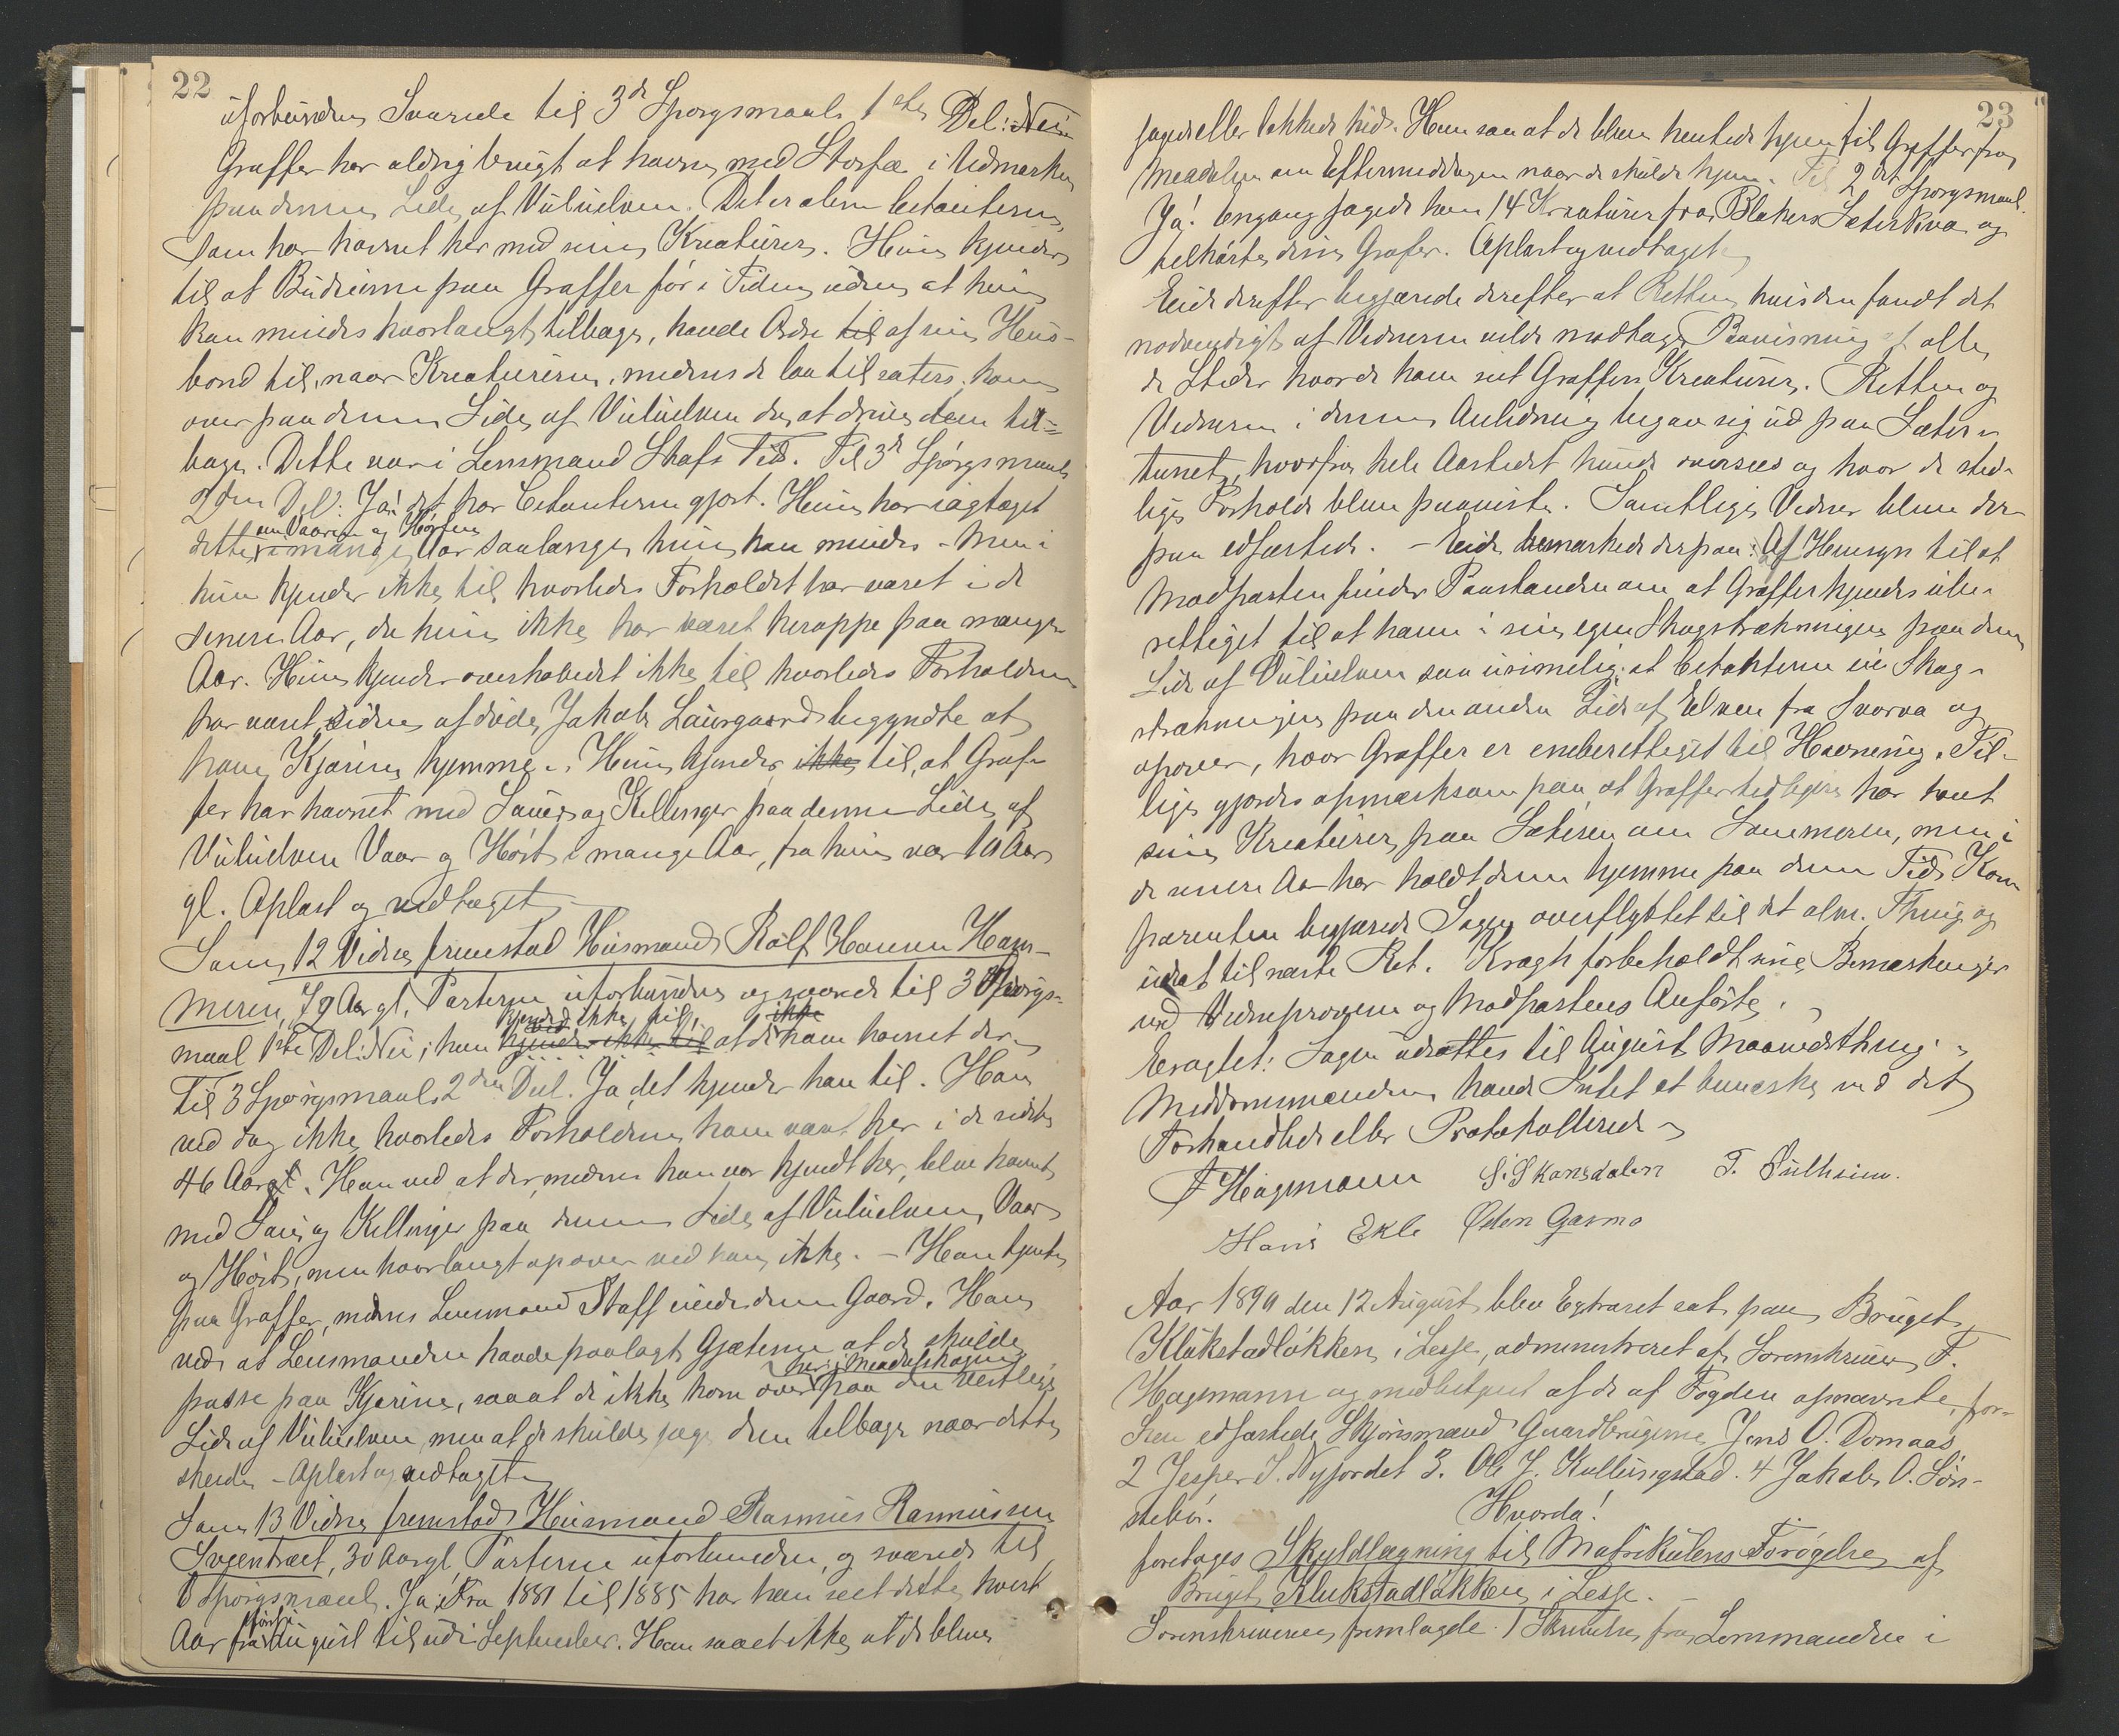 22
uforbunden Svarede til 3de Spørgsmaals 1ste Del: Nei
Graffer har aldrig brugt at havne med Storfæ i Udmarken
paa denne Side af Vulu elven. Det er alene Citanterne,
som har havnet her med sine Kreaturer. Hun kjender
til at Budeierne paa Graffer før i Tiden, uden at hun
kan mindes hvorlangt tilbage, havde Ordre til af sin Hus-
bond til, naar Kreaturerne, medens de laa til sæters, kom
over paa denne Side af Vuluelven da at drive dem til-
bage. Dette var i Lensmand Stafs Tid. Til 3de Spørgsmaals
2den Del: Ja det har Citanterne gjort. Hun har iagtaget
dette om Vaaren og Høsten i mange Aar saalænge hun kan mindes. Men
hun kjender ikke til hvorledes Forholdet har været i de
senere Aar, da hun ikke har været heroppe paa mange
Aar. Hun kjender overhovedet ikke til hvorledes Forholdene
har været, siden afdøde Jakob Laurgaard begyndte at
have Kjørene hjemme. Hun kjender ikke til, at Graf-
fer har havnet med Sauer og Killinger paa denne Side af
Vuluelven Vaar og Høst i mange Aar, fra hun var 10 Aar
gl. Oplæst og vedtaget.
Som 12 Vidne fremstod Husmand Rolf Hansen Ham-
meren, 79 Aar gl, Parterne uforbunden og svarede til 3 Spørgs-
maal 1ste Del: Nei; han kjender ikke til at de have havnet der.
Til 3 Spørgsmaals 2den Del. Ja, det kjender han til. Han
ved dog ikke, hvorledes Forholdene have været her i de sidste
46 Aar. Han ved at der, medens han var kjendt her, blev havnet
med Sau og Killinger paa denne Side af Vuluelven, Vaar
og Høst, men hvorlangt opover ved han ikke. – Han tjente
paa Graffer, medens Lensmand Staff eiede denne Gaard. Han
ved, at Lensmanden havde paalagt Gjæterne at de skulde
passe paa Kjørene, saa at de ikke kom over her i Meadalskogen paa den vestlige
Side af Vuluelven, men at de skulde jage dem tilbage naar dette
skede. – Oplæst og vedtaget.
Som 13 Vidne fremstod Husmand Rasmus Rasmussen
Sveentræet, 30 Aar gl, Parterne uforbunden, og svarede til
Spørgsmaal. Ja. Fra 1881 til 1885 har han seet dette hvert
Aar fra først i August til ud i September. Han saa et ikke at de bleve
23
jaget eller lokkede hid. Han saa at de bleve hentede hjem til Graffer fra
Meadalen om Eftermiddagen naar de skulde hjem. Til 2det Spørgsmaal.
Ja! Engang jagede han 14 Kreaturer fra Blakers Sæterkve og
tilhørte disse Grafer. Oplæst og vedtaget.
Eide derefter begjærede derefter at Retten, hvis den fandt det
nødvendigt af Vidnerne vilde modtage Paavisning af alle
de Steder hvor de have seet Graffers Kreaturer. Retten og
Vidnerne i denne Anledning begav sig ud paa Sæter-
tunet, hvorfra hele Aastedet kunde oversees og hvor de sted-
lige Forholde bleve paaviste. Samtlige Vidner bleve der-
paa edfæstede. – Eide bemærkede derpaa: Af Hensyn til at
Modparten finder Paastanden om at Graffer kjendes ube-
rettiget til at havne i sin egen Skogstrækningen paa denne
Side af Vuluelven saa urimelig, at Citanterne eie Skog-
strækningen paa den anden Side af Elven fra Svorva og
opover, hvor Graffer er eneberettiget til Havning. Til-
lige gjordes opmærksom paa, at Graffer tidligere har havt
sine Kreaturer paa Sæteren om Sommeren, men i
de senere Aar har holdt dem hjemme paa denne Tid. Kom-
parenten begjærede Sagen overflyttet til det alm. Thing og
udsat til næste Ret. Kragh forbeholdt sine Bemærkninger
ved Vidneprovene og Modpartens Anførte.
Eragtet: Sagen udsættes til August Maanedsthing.
Meddommændene havde Intet at bemærke ved det
Forhandlede eller Protokollerede
F Hagemann S. Skansdalen T. Sulheim.
Hans Ekle Østen Garmo
Aar 1890 den 12 August blev Extraret sat paa Bruget
Klukstadløkken i Lesje, administreret af Sorenskriver F.
Hagemann og medbetjent af de af Fogden opnævnte, for-
hen edfæstede Skjønsmænd Gaardbrugerne Jens O. Domaas,
2 Jesper J. Nyjordet 3. Ole J. Kullungstad. 4 Jakob O. Søn-
stebø.
Hvorda!
foretoges Skyldlægning til Matrikulens Forøgelse af
Bruget Klukstadløkken i Lesje. –
Sorenskriveren fremlagde. 1 Skrivelse fra Lensmanden i